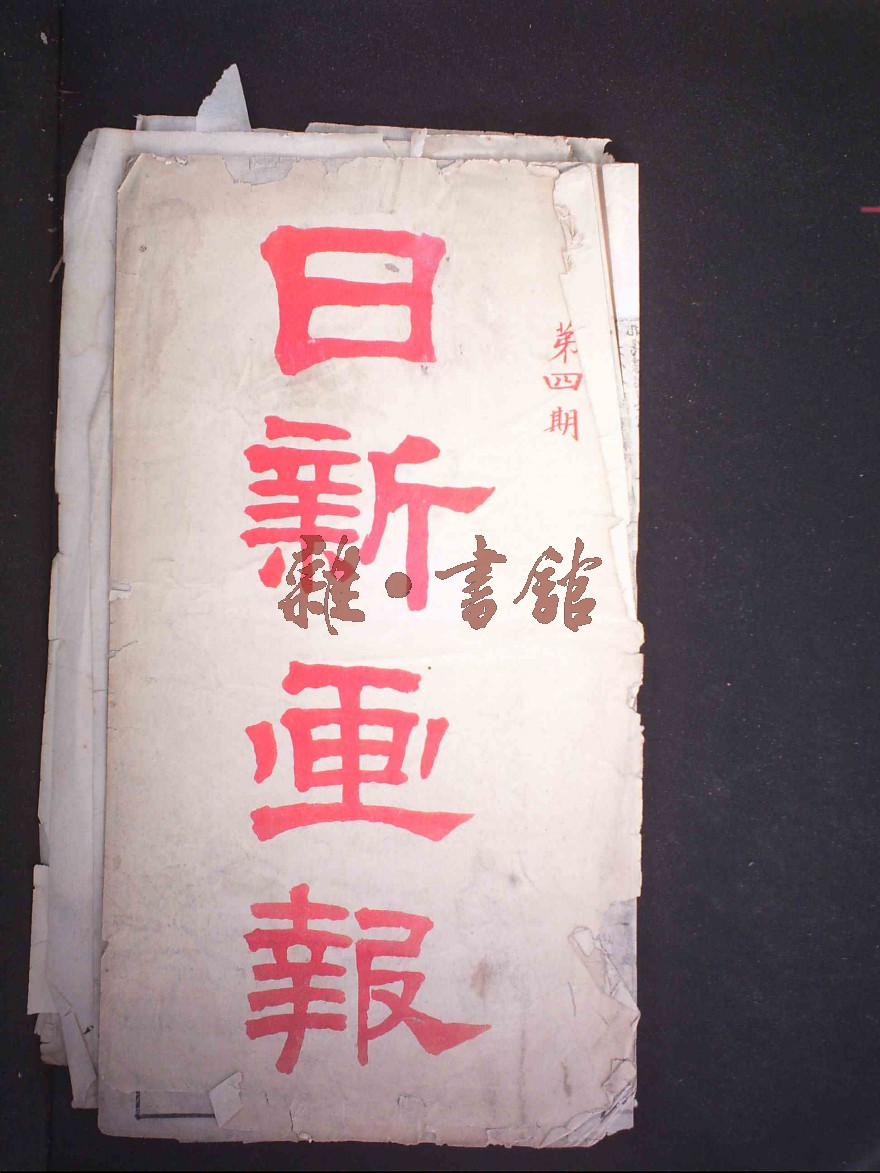 第四期
日新画報
雜·書館